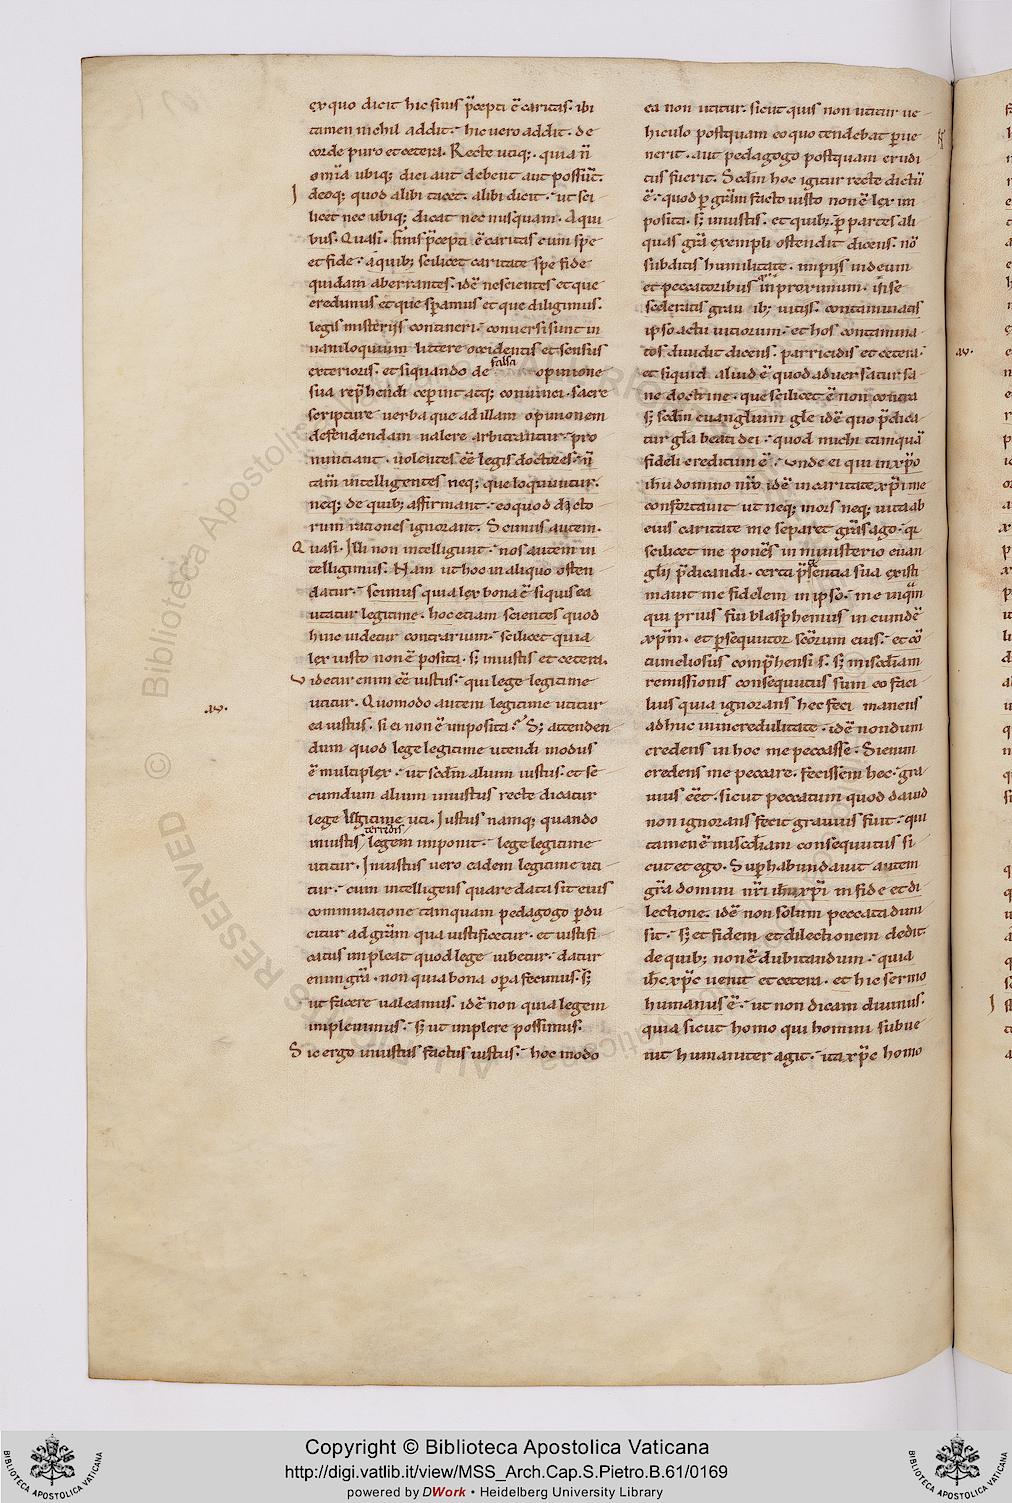 ex quo dicit hic finis p̄cepti ē caritas. ibi
tamen nichil addit. hic uero addit. de
corde puro et cetera. Recte utiq;. quia n̄
omīa ubiq; dici aut debent aut possūt.
Ideoq; quod alibi tacet. alibi dicit. ut sci
licet nec ubiq; dicat nec nusquam. A qui
bus. Quasi. finis p̄cepti ē caritas cum spe
et fide. a quib; scilicet caritate spe fide
quidam aberrantes. idē nescientes et que
credimus et que sp̄amus et que diligimus.
legis misterijs contineri. conuersi sunt in
uaniloquium littere occidentis et sensus
exterioris. et siquando de falsa opinione
sua rep̄hendi ceperint atq; conuinci. sacre
scripture uerba que ad illam opinionem
defendendam ualere arbitrantur. pro
nuntiant. uolentes eē legis doctores. n̄
tam̄ intelligentes neq; que loquuntur.
neq; de quib; affirmant. eo quod dictо
rum rationes ignorant. Scimus autem.
Quasi. Illi non intelligunt. nos autem in
telligimus. Nam ut hoc in aliquo osten
datur. scimus quia lex bona ē siquis ea
utatur legitime. hoc etiam scientes quod
hinc uidetur contrarium. scilicet quia
lex iusto non ē posita. s; iniustis et cetera.
Videtur enim eē iustus. qui lege legitime
utitur. Quomodo autem legitime utitur
ea iustus. si ei non ē imposita? S; attenden
dum quod lege legitime utendi modus
ē multiplex. ut scd̄m alium iustus. et se
cundum alium iniustus recte dicatur
lege legitime uti. Iustus namq; quando
iniustis terrēdis legem imponit. lege legitime
utitur. Iniustus uero eadem legitime uti
tur. cum intelligens quare data sit eius
comminatione tamquam pedagogo p̄du
citur ad grām qua iustificetur. et iustifi
catus impleat quod lege iubetur. datur
enim grā. non quia bona op̄a fecimus. s;
ut facere ualeamus. idē non quia legem
impleuimus. s; ut implere possimus.
Sic ergo iniustus factus iustus. hoc modo
.aṿ.
ea non utitur. sicut quis non utitur ue
hiculo postquam eo quo tendebat p̄ue
nerit. aut pedagogo postquam erudi
tus fuerit. Scd̄m hoc igitur recte dictū
ē. quod p grām facto iusto non ē lex im
posita. s; iniustis. et quib; p partes ali
quas grā exempli ostendit dicens. nō
subditis humilitate. impijs in deum
et peccatoribus in proximum.
sceleratis graui ib; uitiis. contaminatis
ipso actu uitiorum. et hos contamina
tos diuidit dicens. parricidis et cetera.
et siquid aliud ē quod aduersatur sa
ne doctrine. que scilicet ē non contra
s; scd̄m euanglium gl̄e idē quo p̄dica
tur gl̄a beati dei. quod michi tamquā
fideli creditum ē. unde ei qui in xp̄o
ihu domino nr̄o idē in caritate xp̄i me
confortauit ut neq; mors neq; uita ab
eius caritate me separet grās ago. qi
scilicet me ponēs in ministerio euan
glij p̄dicandi. certi p̄sentia sua existi
mauit me fidelem in ipso. me inquam
qui prius fui blasphemus in eumdē
xp̄m. et p̄sequutor scōrum eius. et cō
tumeliosus comp̄hensis. s; misc̄diam
remissionis consequutus sum eo faci
lius quia ignorans hec feci manens
adhuc in incredulitate. idē nondum
credens in hoc me peccasse. Si enim
credens me peccare. fecissem hec. gra
uius eēt. sicut peccatum quod dauid
non ignorans fecit grauius fuit. qui
tamen ē misc̄diam consequutus si
cut et ego. Sup̄habundauit autem
grā domini nr̄i ihu xp̄i in fide et di
lectione. idē non solum peccata dimi
sit. s; et fidem et dilectionem dedit
de quib; non ē dubitandum. quia
ih̄c xp̄c uenit et cetera. et hic sermo
humanus ē. ut non dicam diuinus.
quia sicut homo qui homini subue
nit humaniter agit. ita xp̄c homo
Copyright © Biblioteca Apostolica Vaticana
http://digi.vatlib.it/view/MSS_Arch.Cap.S.Pietro.B.61/0169
powered by DWork • Heidelberg University Library
BIBLIOTECA APOSTOLICA VATICANA
BIBLIOTECA APOSTOLICA VATICANA